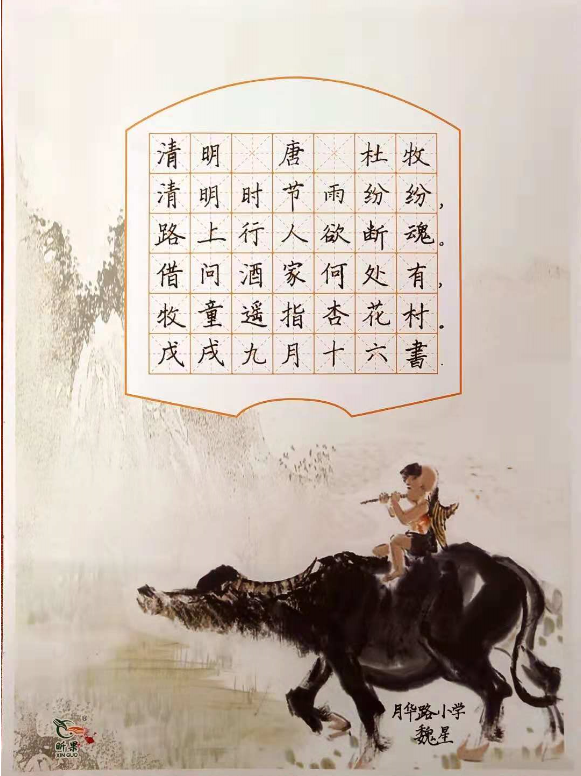 清明 唐 杜牧
清明时节雨纷纷，
路上行人欲断魂。
借问酒家何处有，
牧童遥指杏花村。
戊戌九月十六書
月华路小学
魏星
昕果
XIN GUO